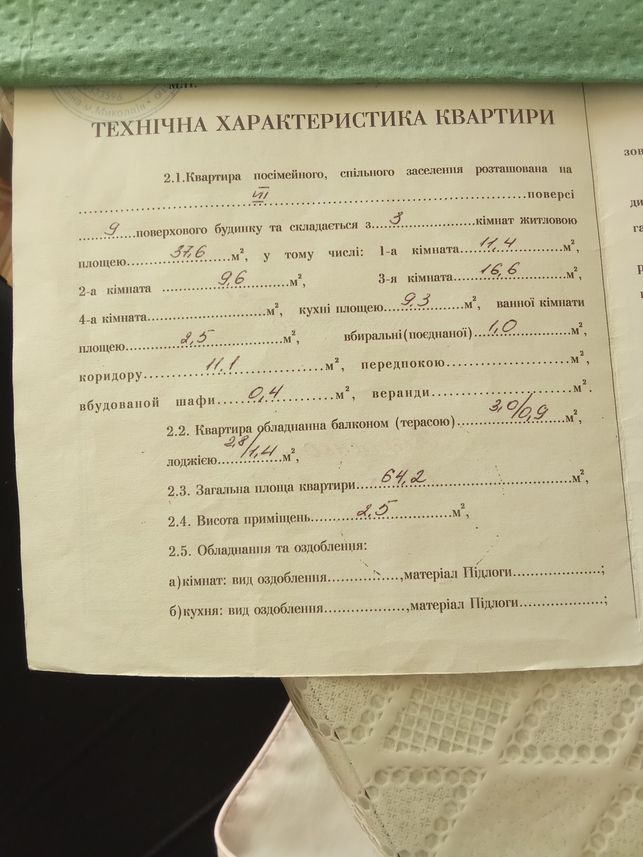 м.п.
ТЕХНІЧНА ХАРАКТЕРИСТИКА КВАРТИРИ
2.1.Квартира посімейного, спільного заселення розташована на
VII поверсі
9 поверхового будинку та складається з 3 кімнат житловою
площею 37,6 м², у тому числі: 1-а кімната 11,4 м²,
2-а кімната 9,6 м², 3-я кімната 16,6 м²,
4-а кімната м², кухні площею 9.3 м², ванної кімнати
площею 2,5 м², вбиральні(поєднаної) 1,0 м²,
коридору 11,1 м², передпокою м²,
вбудованой шафи 0,4 м², веранди м².
2.2. Квартира обладнанна балконом (терасою) 3,0/0,9 м²,
лоджією 2,8/1,4 м²,
2.3. Загальна площа квартири 64,2 м²,
2.4. Висота приміщень 2,5 м²,
2.5. Обладнання та оздоблення:
а)кімнат: вид оздоблення ,матеріал Підлоги ;
б)кухня: вид оздоблення ,матеріал Підлоги ;
зов
ди
га